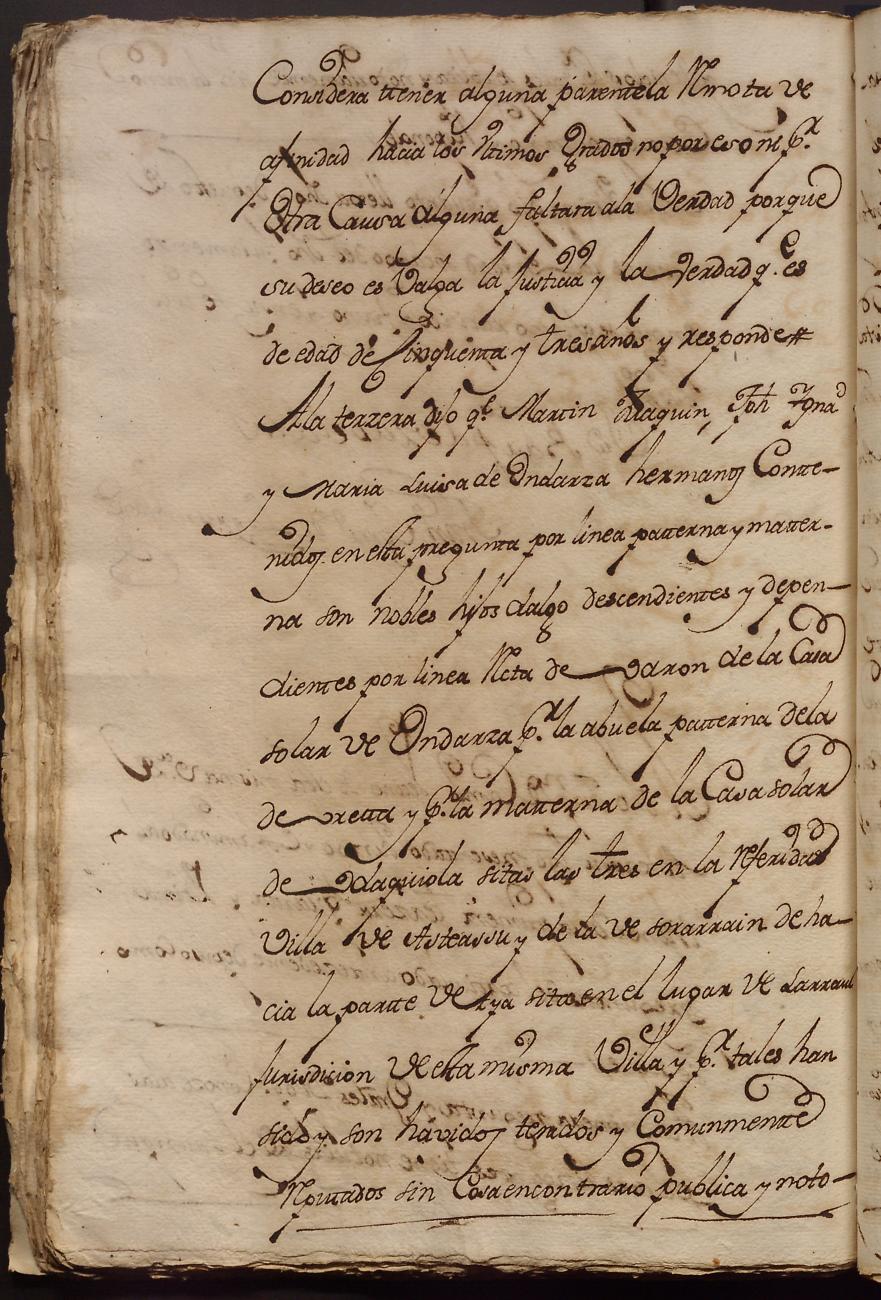 Considera ttener alguna parentela Rmota de
afinidad hacia los Vltimos Grados no por eso ni pr.
Otra Causa alguna faltara ala Verdad porque
su deseo es Valga la Justicia y la Verdad q. es
de edad de Cinquenta y tres años y responde #
Ala terzera dijo qe. Martin Juaquin, Jph Ygnao
y Maria Luisa de Ondarza hermanos Contte-
nidos en esta pregunta por linea patterna y matter-
na son nobles hijos dalgo descendientes y depen-
dientes por linea Rcta de Varon de la Casa
solar de Ondarza pr. la abuela patterna dela
de Vretta y pr. la matterna de la Casa solar
de sitas las tres en la Rferida
Villa de Asteassu y de la de sorarrain de ha-
cia la partte de sita en el lugar de Larraul
Jurisdicion de esta misma Villa y pr. tales han
sido y son havidos tenidos y Comunmentte
Rputados sin Cosa encontrario publica y noto-